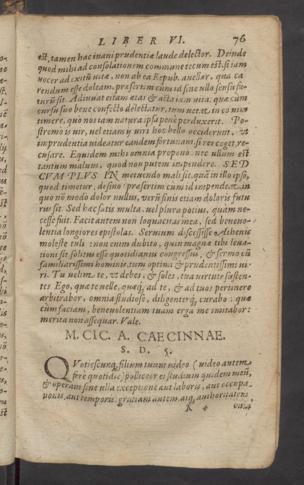 LIBER VI. 76
est, tamen hac inani prudentiæ laude delector. Deinde
quod mihi ad consolationem commune tecum est, si iam
vocer ad exitũ vitæ, non ab ea Repub. avellar, qua ca
rendum esse doleam, præsertim cum id sine ullo sensu fu-
turũ sit. Adiuvat etiam ætas & acta iam vita: quæ cum
cursu suo bene confecto delectatur, tum vetat, in eo vim
timere, quò nos iam natura ipsa penè perduxerit. Po-
stremò is vir, vel etiam ij viri hoc bello occiderunt, ut
impudentia videatur eandem fortunam, si res coget, re-
cusare. Equidem mihi omnia propono: nec ullum est
tantum malum, quod non putem impendere. SED
CUM PLUS IN metuendo mali sit, quàm in illo ipso,
quod timetur, desino: præsertim cum id impendeat, in
quo nõ modo dolor nullus, verũ finis etiam doloris futu
rus sit. Sed hæc satis multa, vel plura potius, quàm ne-
cesse fuit. Facit autem non loquacitas mea, sed benevo-
lentia longiores epistolas. Servium discessisse Athenis
molestè tuli: non enim dubito, quin magnæ tibi levati-
oni sit solitus esse quotidianus congressus, & sermo cũ
familiarissimi hominis, tum optimi & prudentissimi vi-
ri. Tu velim te, ut debes, & soles, tua virtute susten-
tes. Ego, quæ te velle, quæq; ad te, & ad tuos pertinere
arbitrabor, omnia studiosè, diligenterq́; curabo: quæ
cum faciam, benevolentiam tuam erga me imitabor:
merita non assequar. Vale.
M. CIC. A. CAECINNAE.
S. D. 5.
QVotiescunq; filium tuum video (video autem
ferè quotidie) polliceor ei studium quidem meũ,
& operam sine ulla exceptione aut laboris, aut occupa-
tionis, aut temporis: gratiam autem, atq; authoritatem
K 4